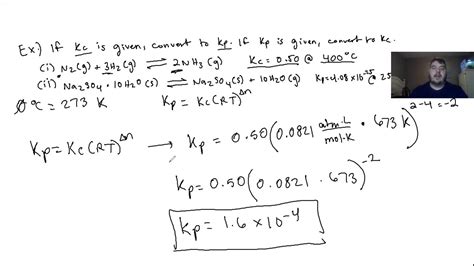 Ex:) If Kc is given, convert to Kp. If Kp is given, convert to Kc.
(i) N₂(g) + 3H₂(g) ⇌ 2NH₃(g) Kc = 0.50 @ 400°C
(ii) Na₂SO₄ · 10H₂O(s) ⇌ Na₂SO₄(s) + 10H₂O(g) Kp = 4.08 × 10⁻²⁵ @ 25
0°C = 273 K Kp = Kc(RT)^Δn
2-4 = -2
Kp = Kc(RT)^Δn → Kp = 0.50(0.0821 atm·L/mol·K · 673 K)
Kp = 0.50(0.0821 · 673)⁻²
Kp = 1.6 × 10⁻⁴